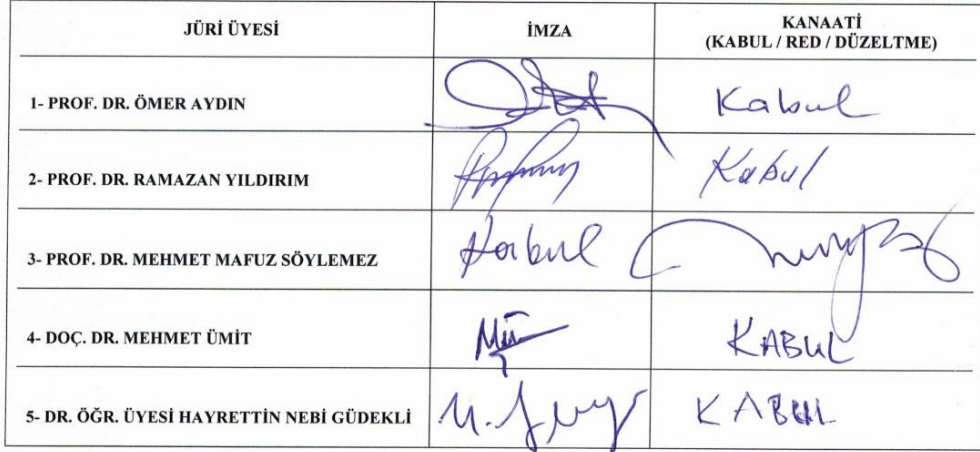 JÜRİ ÜYESİ İMZA KANAATİ
(KABUL / RED / DÜZELTME)
1- PROF. DR. ÖMER AYDIN Kabul
2- PROF. DR. RAMAZAN YILDIRIM Kabul
3- PROF. DR. MEHMET MAFUZ SÖYLEMEZ Kabul
4- DOÇ. DR. MEHMET ÜMİT KABUL
5- DR. ÖĞR. ÜYESİ HAYRETTİN NEBİ GÜDEKLİ KABUL